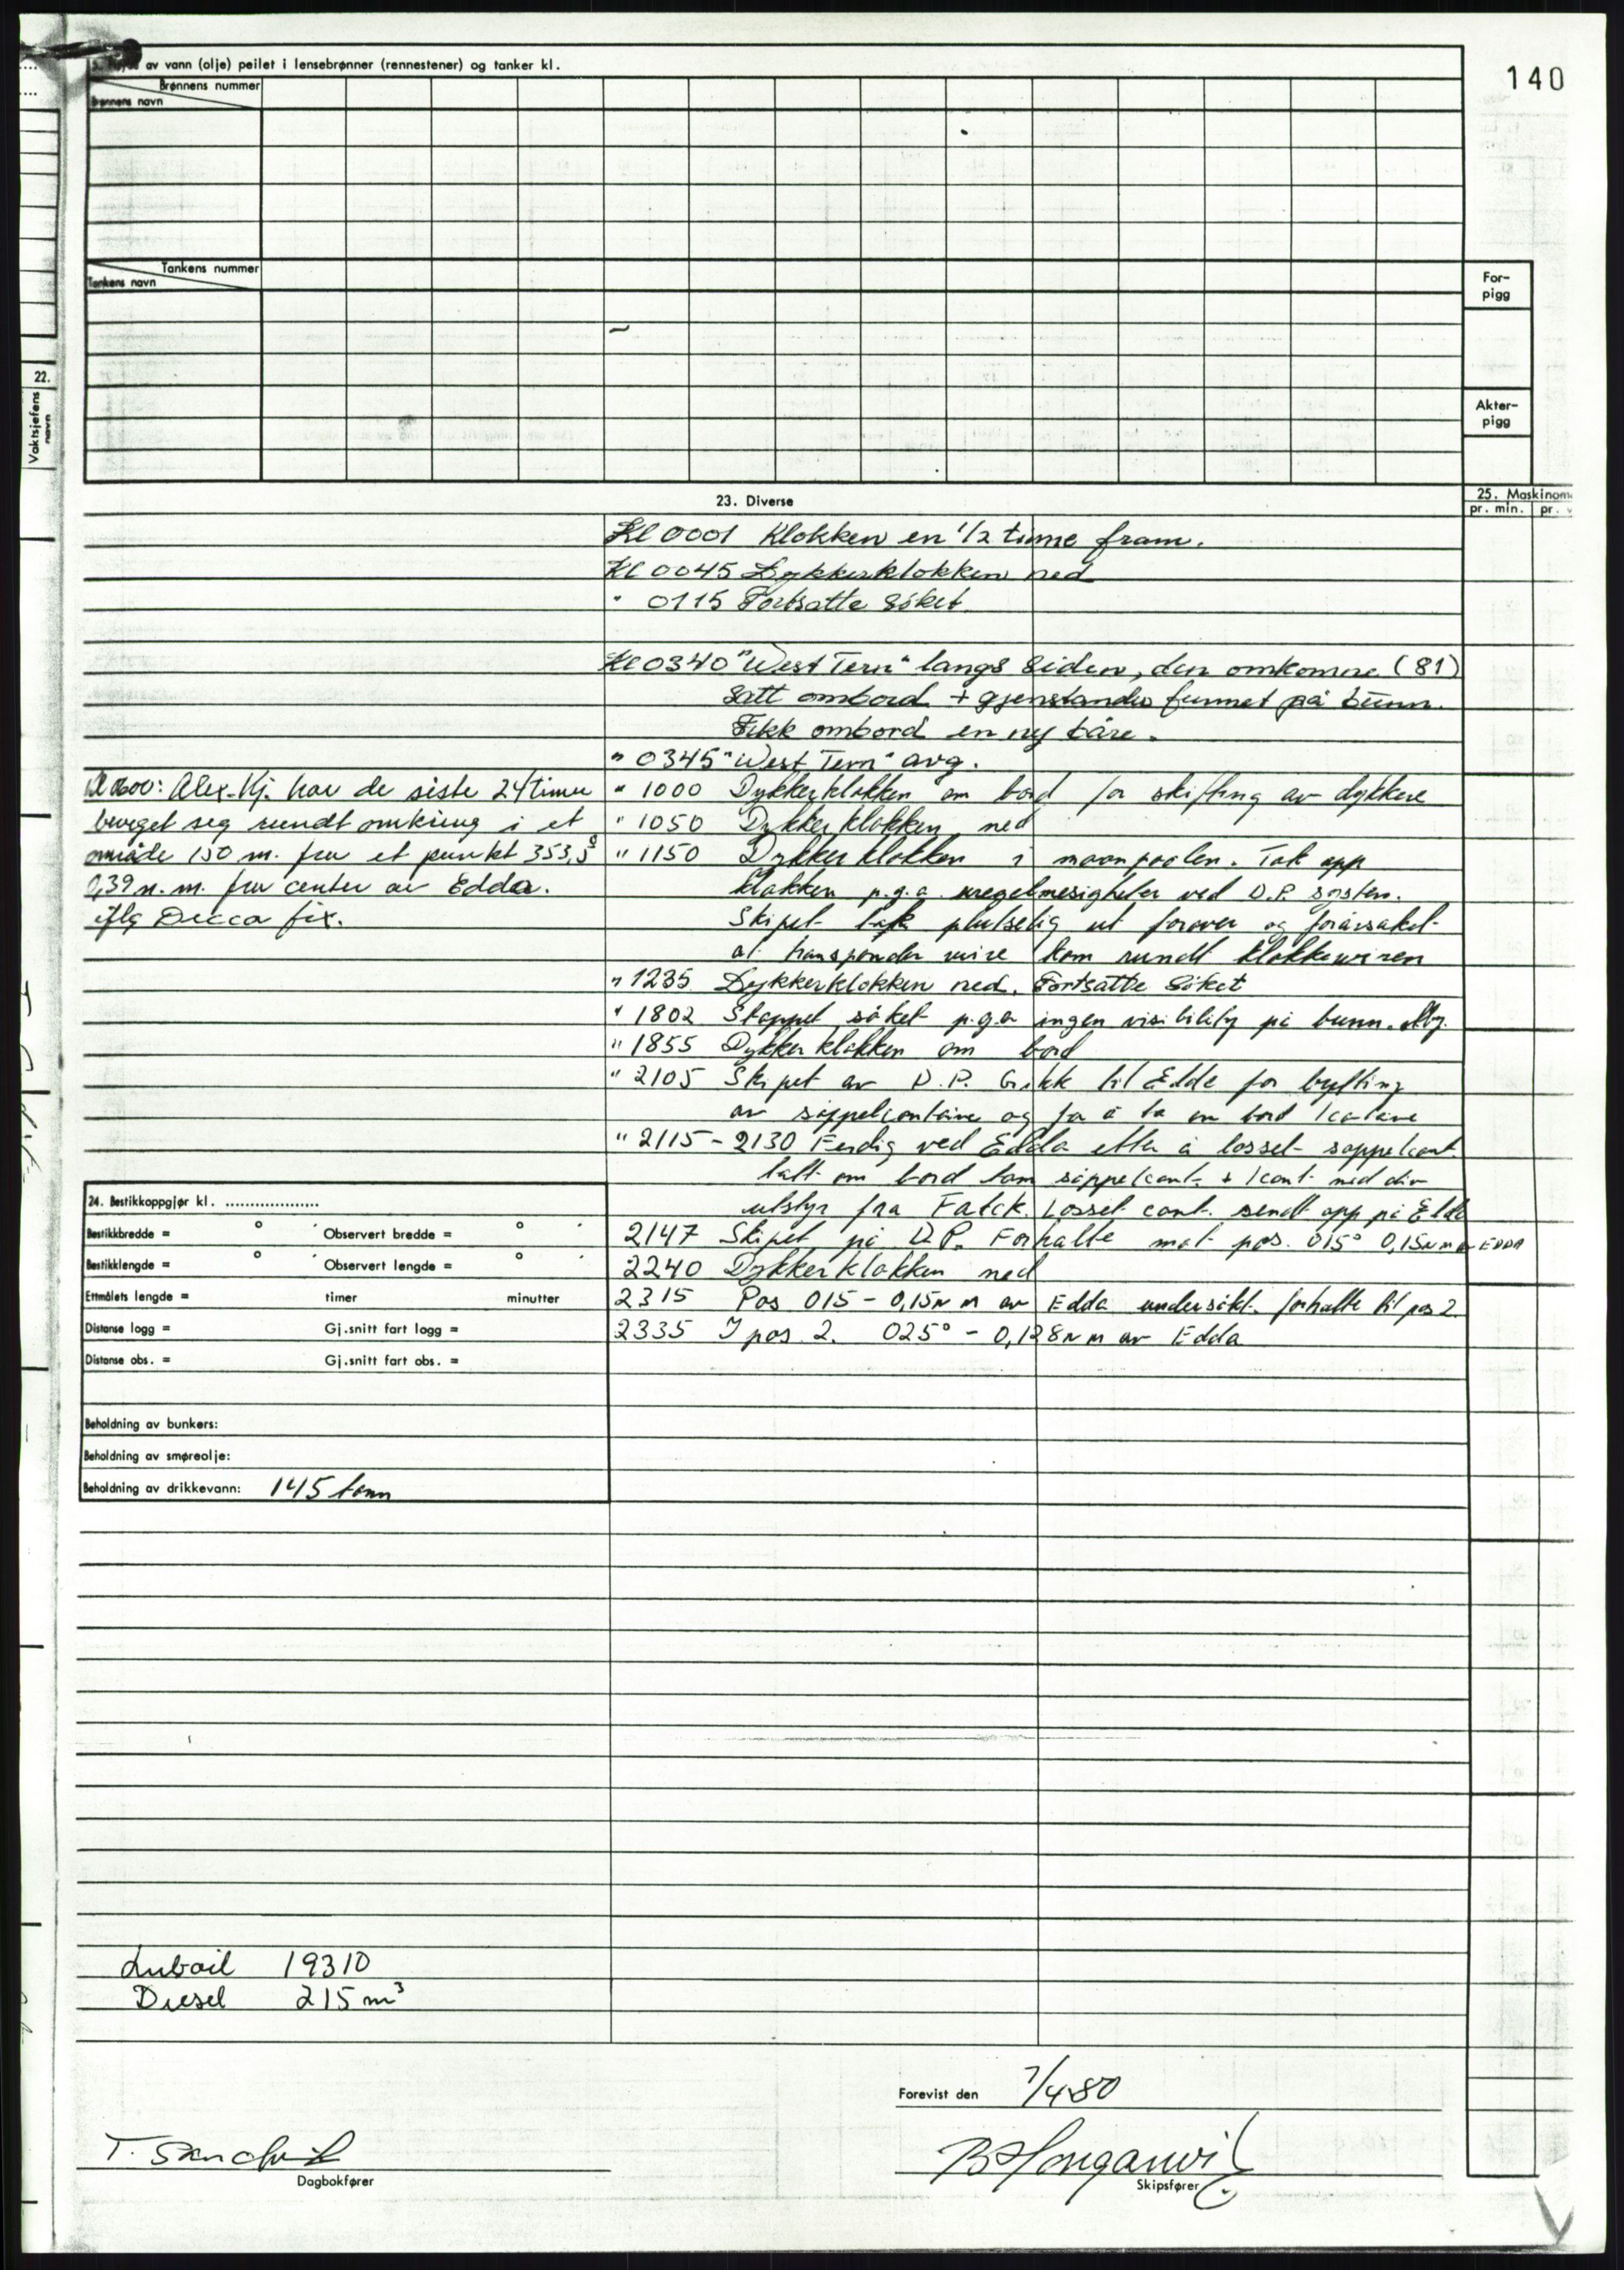 140
av vann (olje) peilet i lensebrønner (rennestener) og tanker kl.
Brønnens nummer
Brønnens navn
Tankens nummer
Tankens navn
For-
pigg
Akter-
pigg
22.
Vaktsjefens
navn
23. Diverse
25. Maskinom
pr. min. pr.
Kl 0001 Klokken en 1/2 time fram.
Kl 0045 Dykkerklokken ned
" 0115 Fortsatte søket
Kl 0340 "West Tern" langs siden, den omkomne (81)
satt ombord + gjenstander funnet på bunn.
Fikk ombord en ny båre.
" 0345 "West Tern" avg.
Kl 0600: Alex. Kj. har de siste 24 timer
beveget seg rundt omkring i et
område 150 m. fra et punkt 353,5°
0,39 n.m. fra center av Edda.
iflg Decca fix.
" 1000 Dykkerklokken om bord for skifting av dykkere
" 1050 Dykkerklokken ned
" 1150 Dykkerklokken i moonpoolen. Tok opp
klokken p.g.a. uregelmesigheter ved D.P. system.
Skipet tok plutselig ut forover og forårsaket
at transponder wire kom rundt klokkewiren
" 1235 Dykkerklokken ned. Fortsatte søket
" 1802 Stoppet søket p.g.a ingen visibility på bunn.
" 1855 Dykkerklokken om bord
" 2105 Skipet av D.P. Gikk til Edda for bytting
av søppelcontaine og for å ta om bord 1 containe
" 2115 - 2130 Ferdig ved Edda etter å losset søppelcont.
tatt om bord tom søppelcont. + 1 cont. med div
utstyr fra Fatck. Losset cont. sendt opp på Edda
2147 Skipet på D.P. Forhalte mot pos. 015° 0,15 N m av EDDA
2240 Dykkerklokken ned
2315 Pos 015 - 0,15 N m av Edda undersøkt. forhalte til pos 2.
2335 I pos. 2. 025° - 0,128 N m av Edda
24. Bestikkoppgjør kl. ...................
Bestikkbredde = ° ' Observert bredde = ° '
Bestikklengde = ° ' Observert lengde = ° '
Ettmålets lengde = timer minutter
Distanse logg = Gj.snitt fart logg =
Distanse obs. = Gj.snitt fart obs. =
Beholdning av bunkers:
Beholdning av smøreolje:
Beholdning av drikkevann: 145 tonn
Luboil 19310
Diesel 215 m³
Forevist den 7/4-80
T. Sandvik
Dagbokfører
Skipsfører